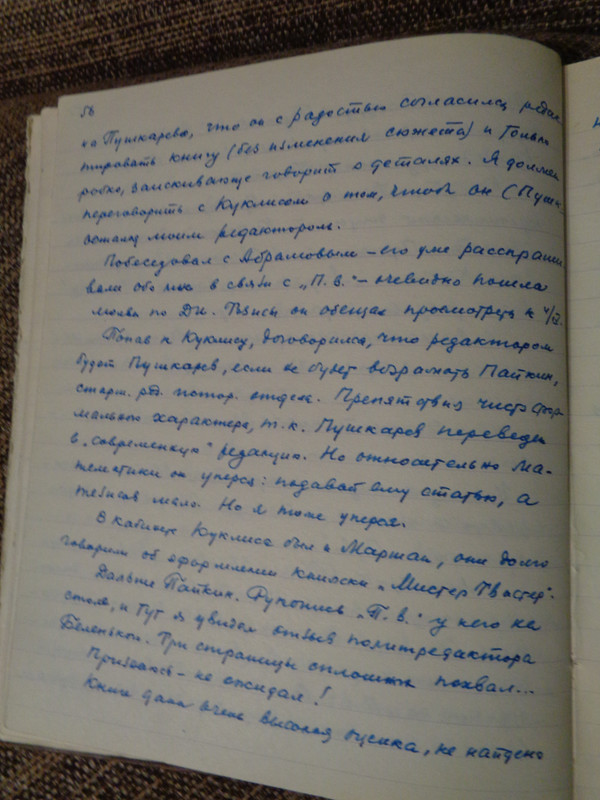 56
на Пушкарева, что он с радостью согласился редак
тировать книгу (без изменения сюжета) и только
робко, заискивающе говорит о деталях. Я должен
переговорить с Куклисом о том, чтоб он (Пушк.)
остался моим редактором.
Побеседовал с Абрамовым – его уже расспраши
вали обо мне в связи с „П. В." – очевидно пошла
молва по ДИ. Тезисы он обещал просмотреть к 4/IX.
Попав к Куклису, договорился, что редактором
будет Пушкарев, если не будет возражать Пайкин,
старш. ред. истор. отдела. Препятствия чисто фор
мального характера, т. к. Пушкарев переведен
в „современную" редакцию. Но относительно Ма-
тематики он уперся: подавай ему статью, а
тезисов мало. Но я тоже уперся.
В кабинете Куклиса был и Маршак, они долго
говорили об оформлении книжки „Мистер Твистер".
Дальше Пайкин. Рукопись „П. В." у него на
столе, и тут я увидел отзыв политредактора
Беленькой. Три страницы сплошных похвал...
Признаюсь – не ожидал!
Книге дана очень высокая оценка, не найдено